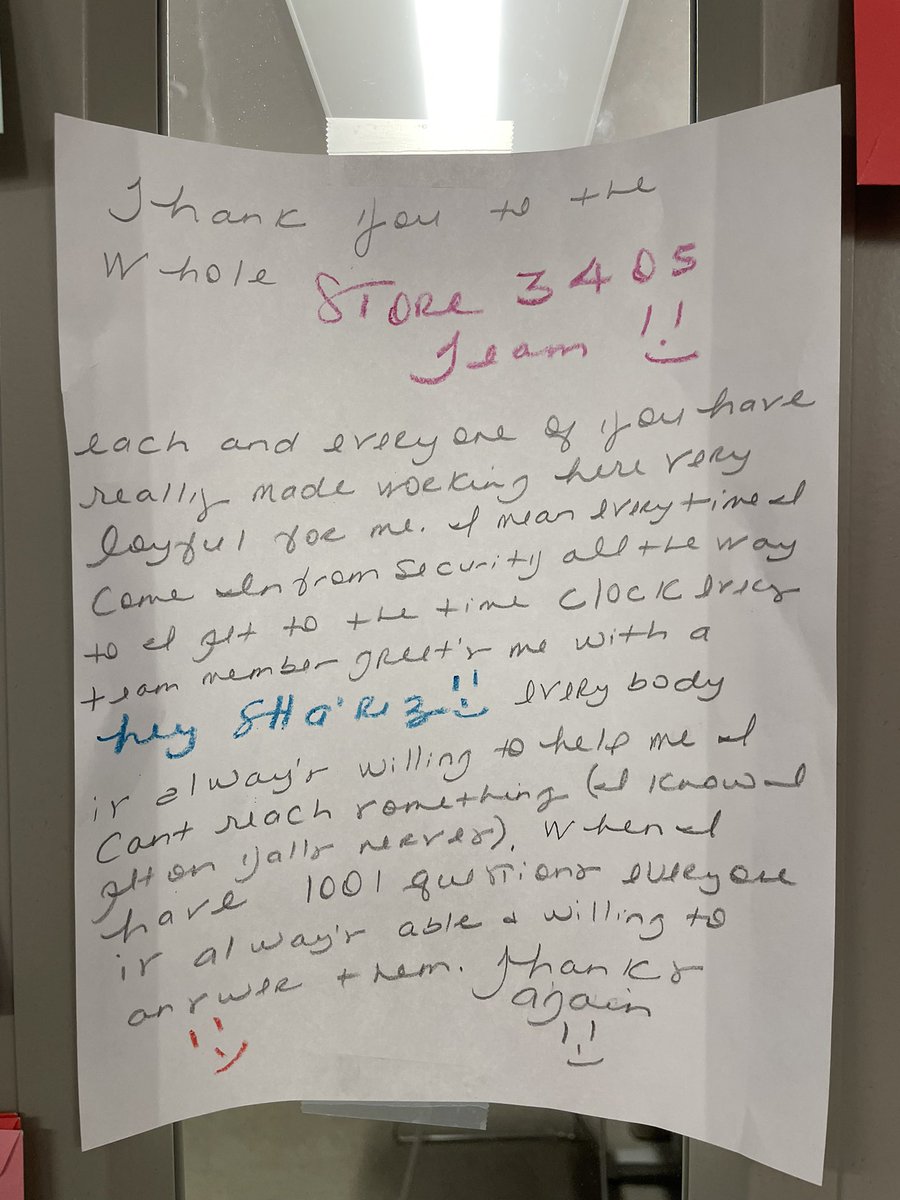 Thank you to the
Whole STORE 3405
Team
each and everyone of you have
really made working here very
Joyful for me. I mean everytime I
Come In from security all the way
to I get to the time clock every
team member greet's me with a
hey SHa'Re
every body
is alway's willing to help me I
Cant reach something (I know I
get on yalls nerves). When I
have 1001 questions everyone
is alway's able & willing to
answer them. Thanks
again